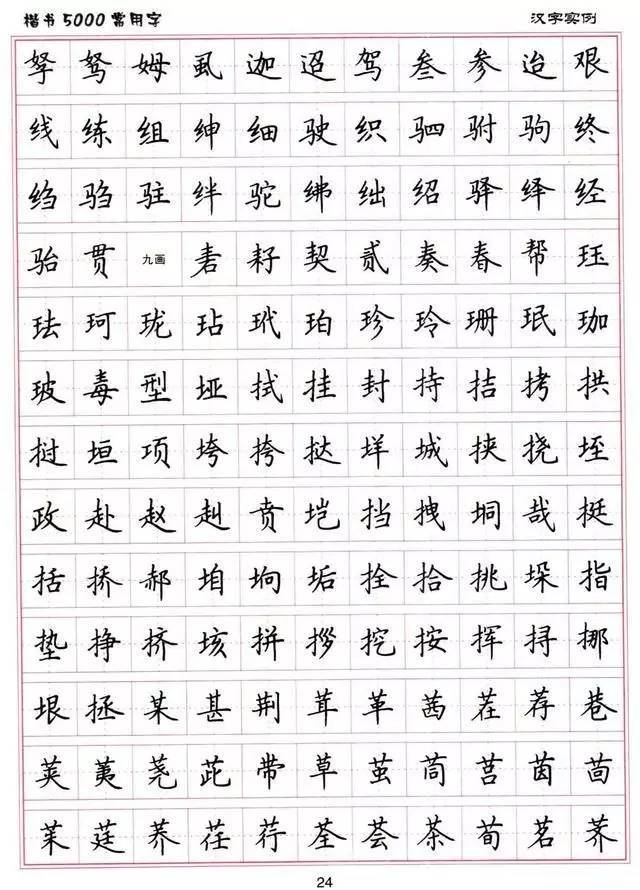 楷书5000常用字 汉字实例
孥 驽 姆 虱 迦 迢 驾 叁 参 迨 艰
线 练 组 绅 细 驶 织 驷 驸 驹 终
绉 驺 驻 绊 驼 绋 绌 绍 驿 绎 经
骀 贯 九画 砉 耔 契 贰 奏 春 帮 珏
珐 珂 珑 玷 玳 珀 珍 玲 珊 珉 珈
玻 毒 型 垭 拭 挂 封 持 拮 拷 拱
挝 垣 项 垮 挎 挞 垟 城 挟 挠 垤
政 赴 赵 赳 贲 垲 挡 拽 垌 哉 挺
括 挢 郝 垍 垧 垢 拴 拾 挑 垛 指
垫 挣 挤 垓 拼 拶 挖 按 挥 挦 挪
垠 拯 某 甚 荆 茸 革 茜 茬 荐 巷
荚 荑 荛 茈 带 草 茧 茼 莒 茵 茴
茱 莛 荞 荏 荇 荃 荟 茶 荀 茗 荠
24